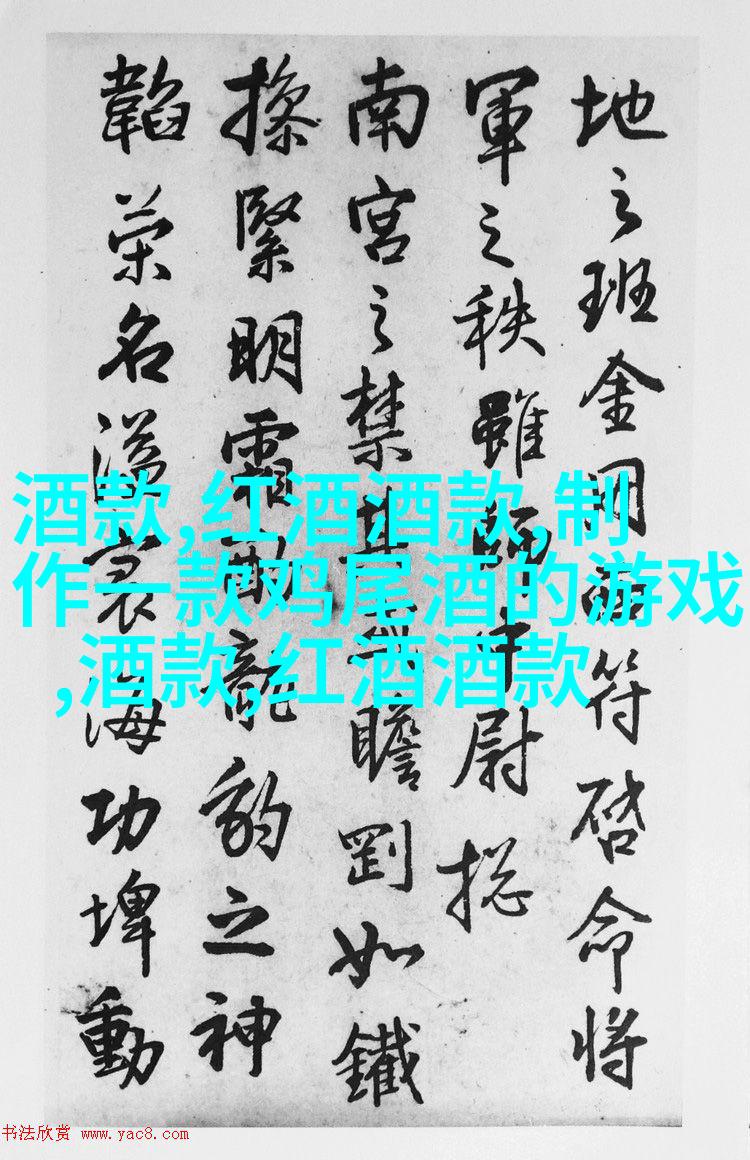 地之班金符啓命將
軍之秩雖中尉揔
南宮之禁瞻剛如鐵
操緊明霜龍豹之神
韜榮名溢寰海功埤動
酒款,红酒酒款,制
作一款鸡尾酒的游戏
,酒款,红酒酒款
书法欣赏 www.yac8.com